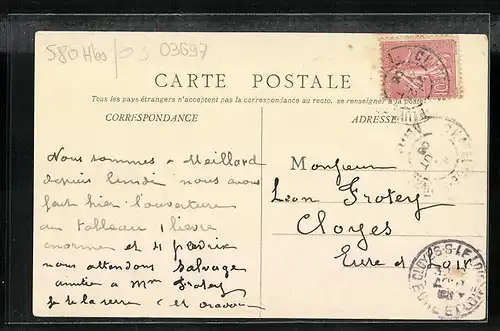 580 Hbs / 03
03697
CARTE POSTALE
Tous les pays étrangers n'acceptent pas la correspondance au recto, se renseigner à la poste
CORRESPONDANCE
ADRESSE
Nous sommes à Meillard
depuis lundi nous avons
fait hier l'ouverture
au tableau 1 lievre
enorme et 4 perdrix
nous attendons Salvage
amitié a Mme Frotey
je te la serre
Monsieur
Leon Frotey
Cloyes
Eure et Loir